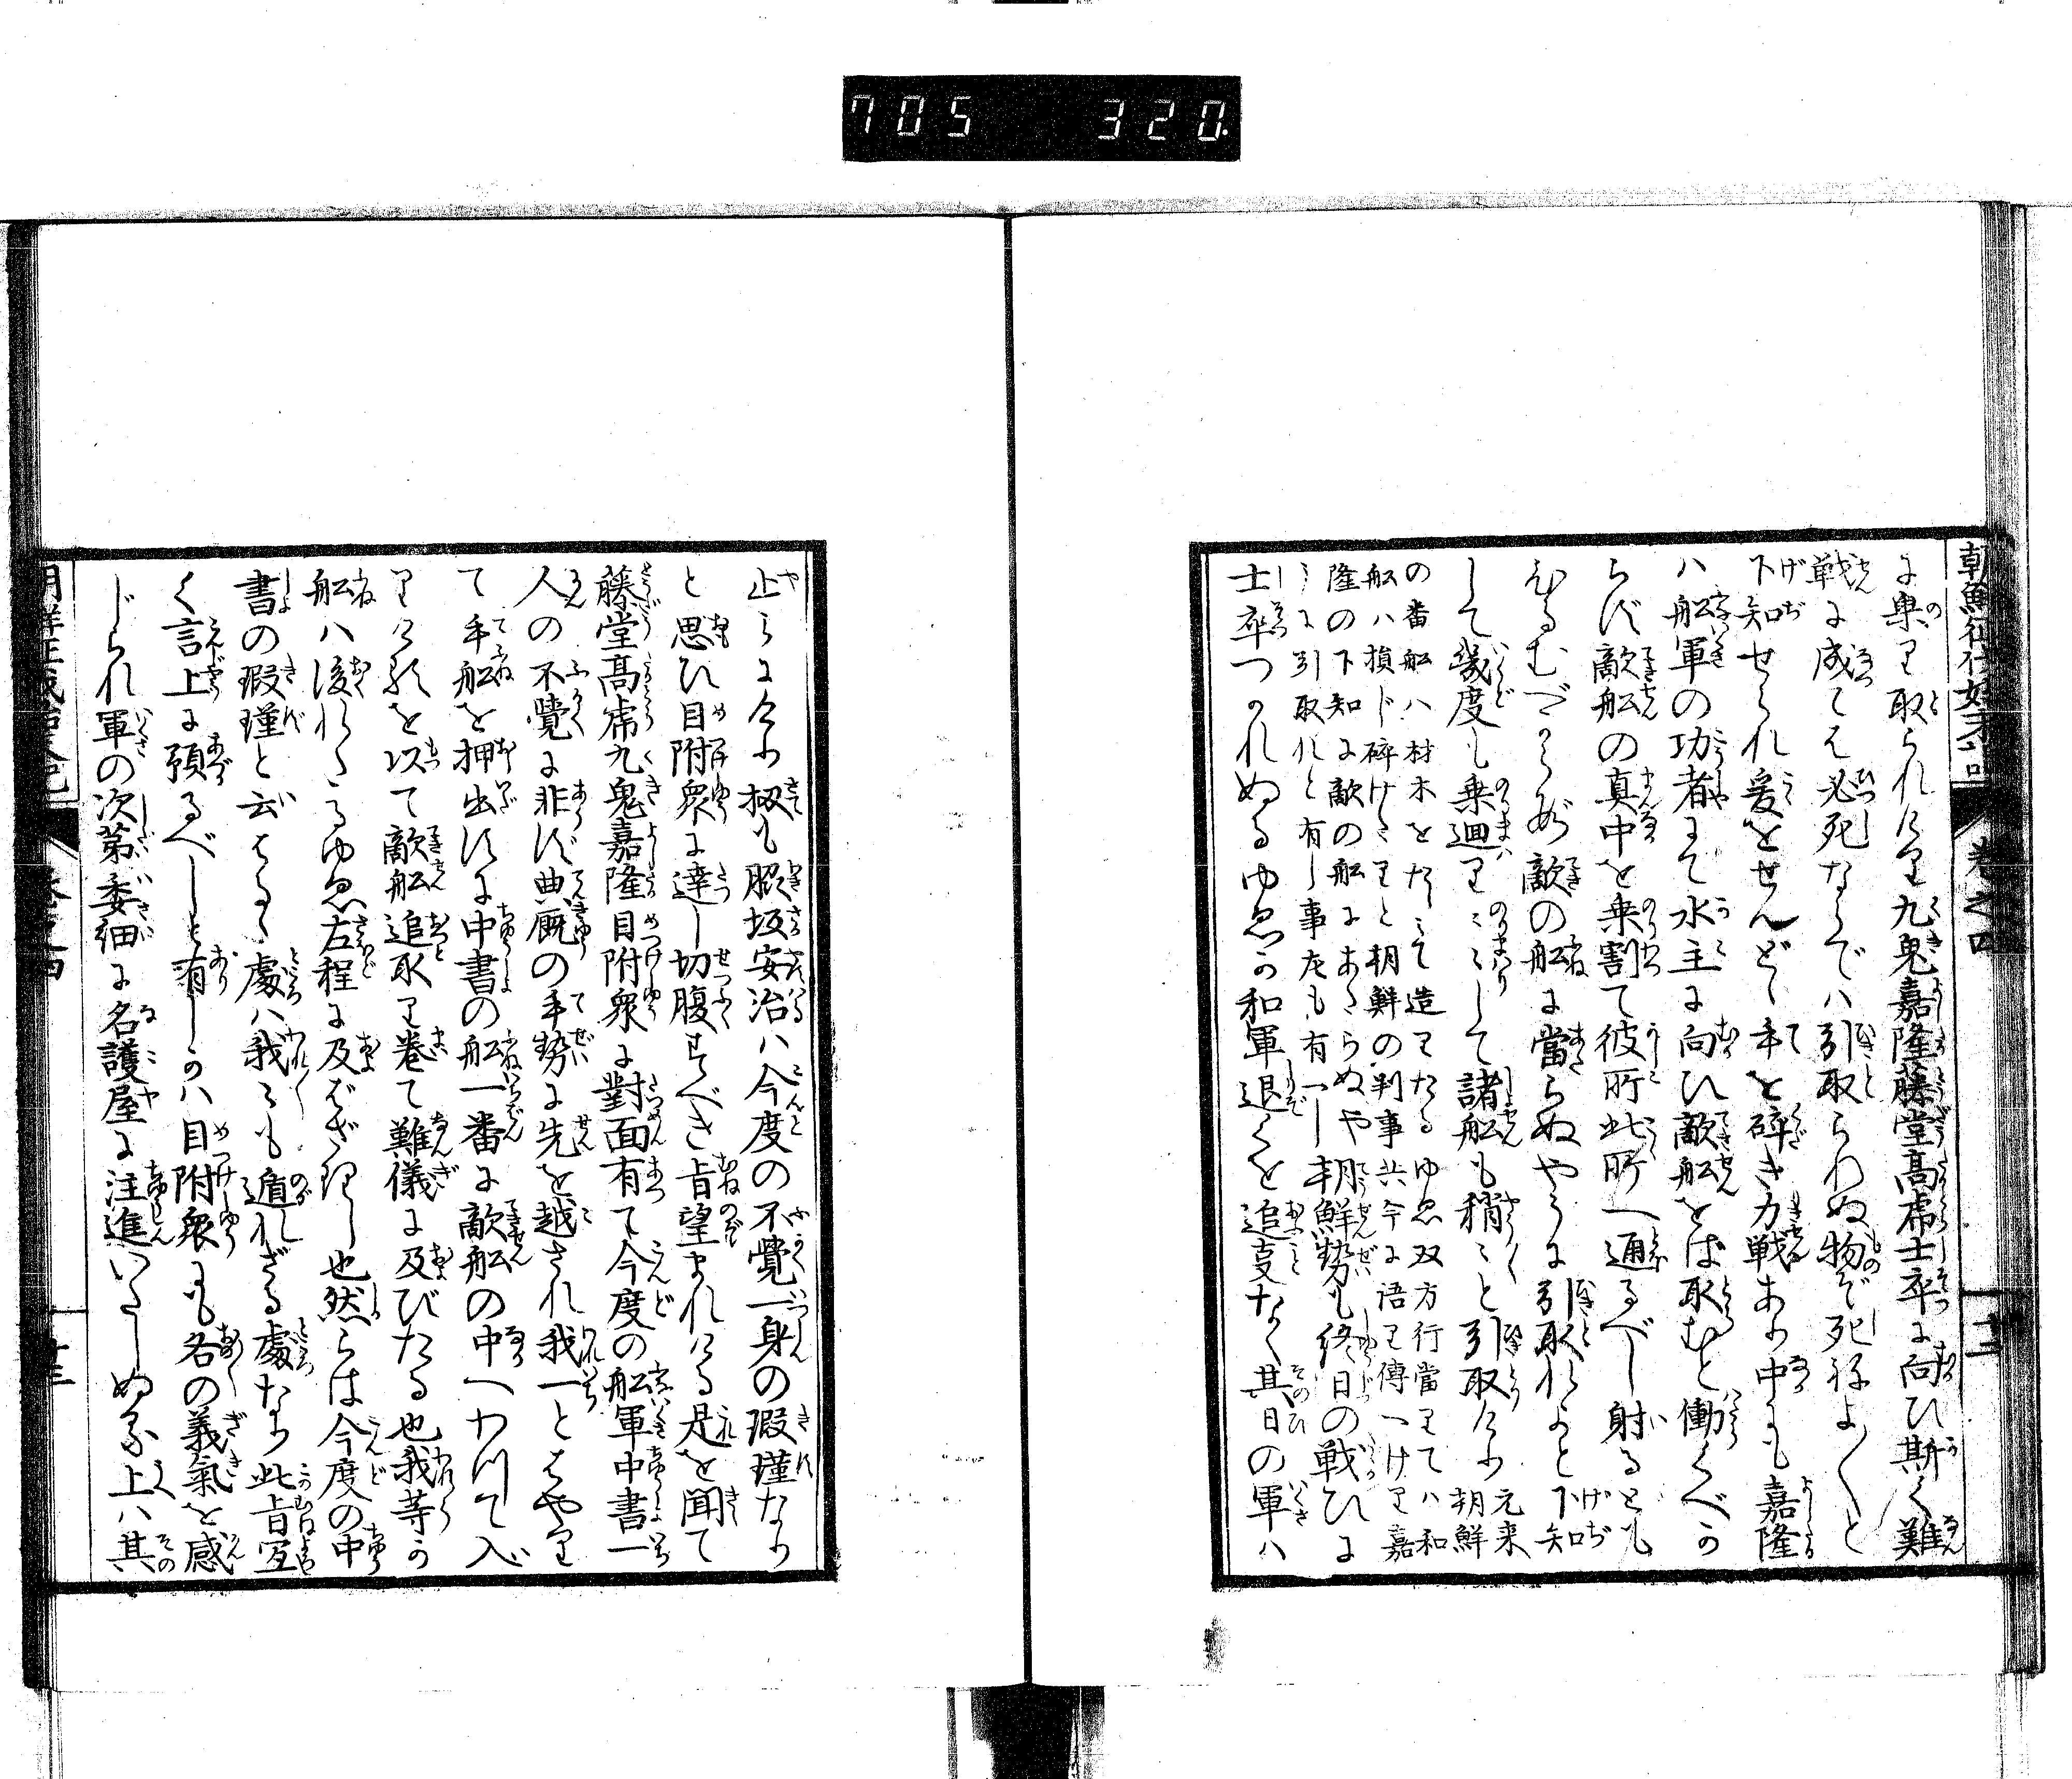 705 320
に乗り取られけり九鬼嘉隆藤堂高虎士卒に向ひ斯く難
戦に成てハ必死ならでハ引取られぬ物ぞ死ねよ〱と
下知せられ爰をせんどゝ手を碎き力戦あり中にも嘉隆
ハ船軍の功者にて水主に向ひ敵船をば取むと働くべか
らず敵船の真中を乗割て彼所此所へ通るべし射るとも
敵の船に當らぬやうに引取れよと下知
して幾度も乗廻り〻〻して諸船も稍〻と引取けり元来朝鮮
の番船ハ材木をたゝみて造りたるゆゑ双方行當りてハ和
船ハ損ド碎けゝりと朝鮮の判事共今に語り傳へけり嘉
隆の下知に敵の船にあたらぬや
うに引取れと有し事尤も有べし
朝鮮勢も終日の戦ひに
士卒つかれぬるゆゑか和軍退くを追事なく其日の軍ハ
止にけり扨も脇坂安治ハ今度の不覺一身の瑕瑾なり
と思ひ目附衆に達し切腹すべき旨望まれける是を聞て
藤堂高虎九鬼嘉隆目附衆に對面有て今度の船軍中書一
人の不覺に非ず典厩の手勢に先を越され我一とはやり
て手船を押出すに中書の船一番に敵船の中へわつて入
りける故を以て敵船追取り巻て難儀に及びたる也我等か
船ハ後れたるゆゑ左程に及ばざりし也然らは今度の中
書の瑕瑾と云はるゝ處ハ我〻も遁れざる處なり此旨宜
く言上に預るべしと有しかハ目附衆にも各の義氣を感
じられ軍の次第委細に名護屋に注進いたしぬ案上ハ其
巻之四